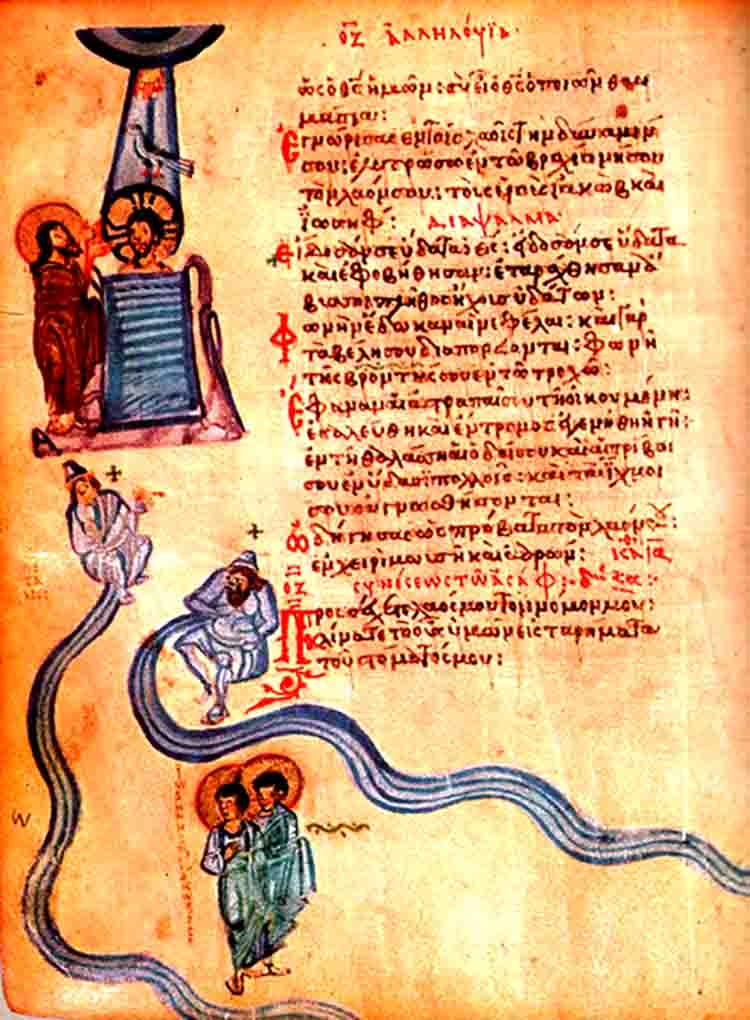 οζ ἀλληλούϊα
ὡς ὁ θς ἡμῶν: σὺ εἶ ὁ θς ὁ ποιῶν θαυ
μάσια:
Ἐγνώρισας ἐν τοῖς λαοῖς τὴν δύναμίν
σου: ἐλυτρώσω ἐν τῷ βραχίονί σου
τὸν λαόν σου: τοὺς υἱοὺς ἰακὼβ καὶ
ἰωσήφ: διάψαλμα
Εἴδοσάν σε ὕδατα ὁ θς: εἴδοσάν σε ὕδατα
καὶ ἐφοβήθησαν: ἐταράχθησαν ἄ
βυσσοι πλῆθος ἤχους ὑδάτων:
Φωνὴν ἔδωκαν αἱ νεφέλαι: καὶ γὰρ
τὰ βέλη σου διαπορεύονται: φωνὴ
τῆς βροντῆς σου ἐν τῷ τροχῷ:
Ἔφαναν αἱ ἀστραπαί σου τῇ οἰκουμένῃ:
ἐσαλεύθη καὶ ἔντρομος ἐγενήθη ἡ γῆ:
ἐν τῇ θαλάσσῃ αἱ ὁδοί σου καὶ αἱ τρίβοι
σου ἐν ὕδασι πολλοῖς: καὶ τὰ ἴχνη
σου οὐ γνωσθήσονται:
Ὡδήγησας ὡς πρόβατα τὸν λαόν σου
ἐν χειρὶ μωυσῆ καὶ ἀαρών:
συνέσεως τῷ ἀσάφ
Προσέχετε λαός μου τὸν νόμον μου:
κλίνατε τὸ οὖς ὑμῶν εἰς τὰ ῥήματα
τοῦ στόματός μου: